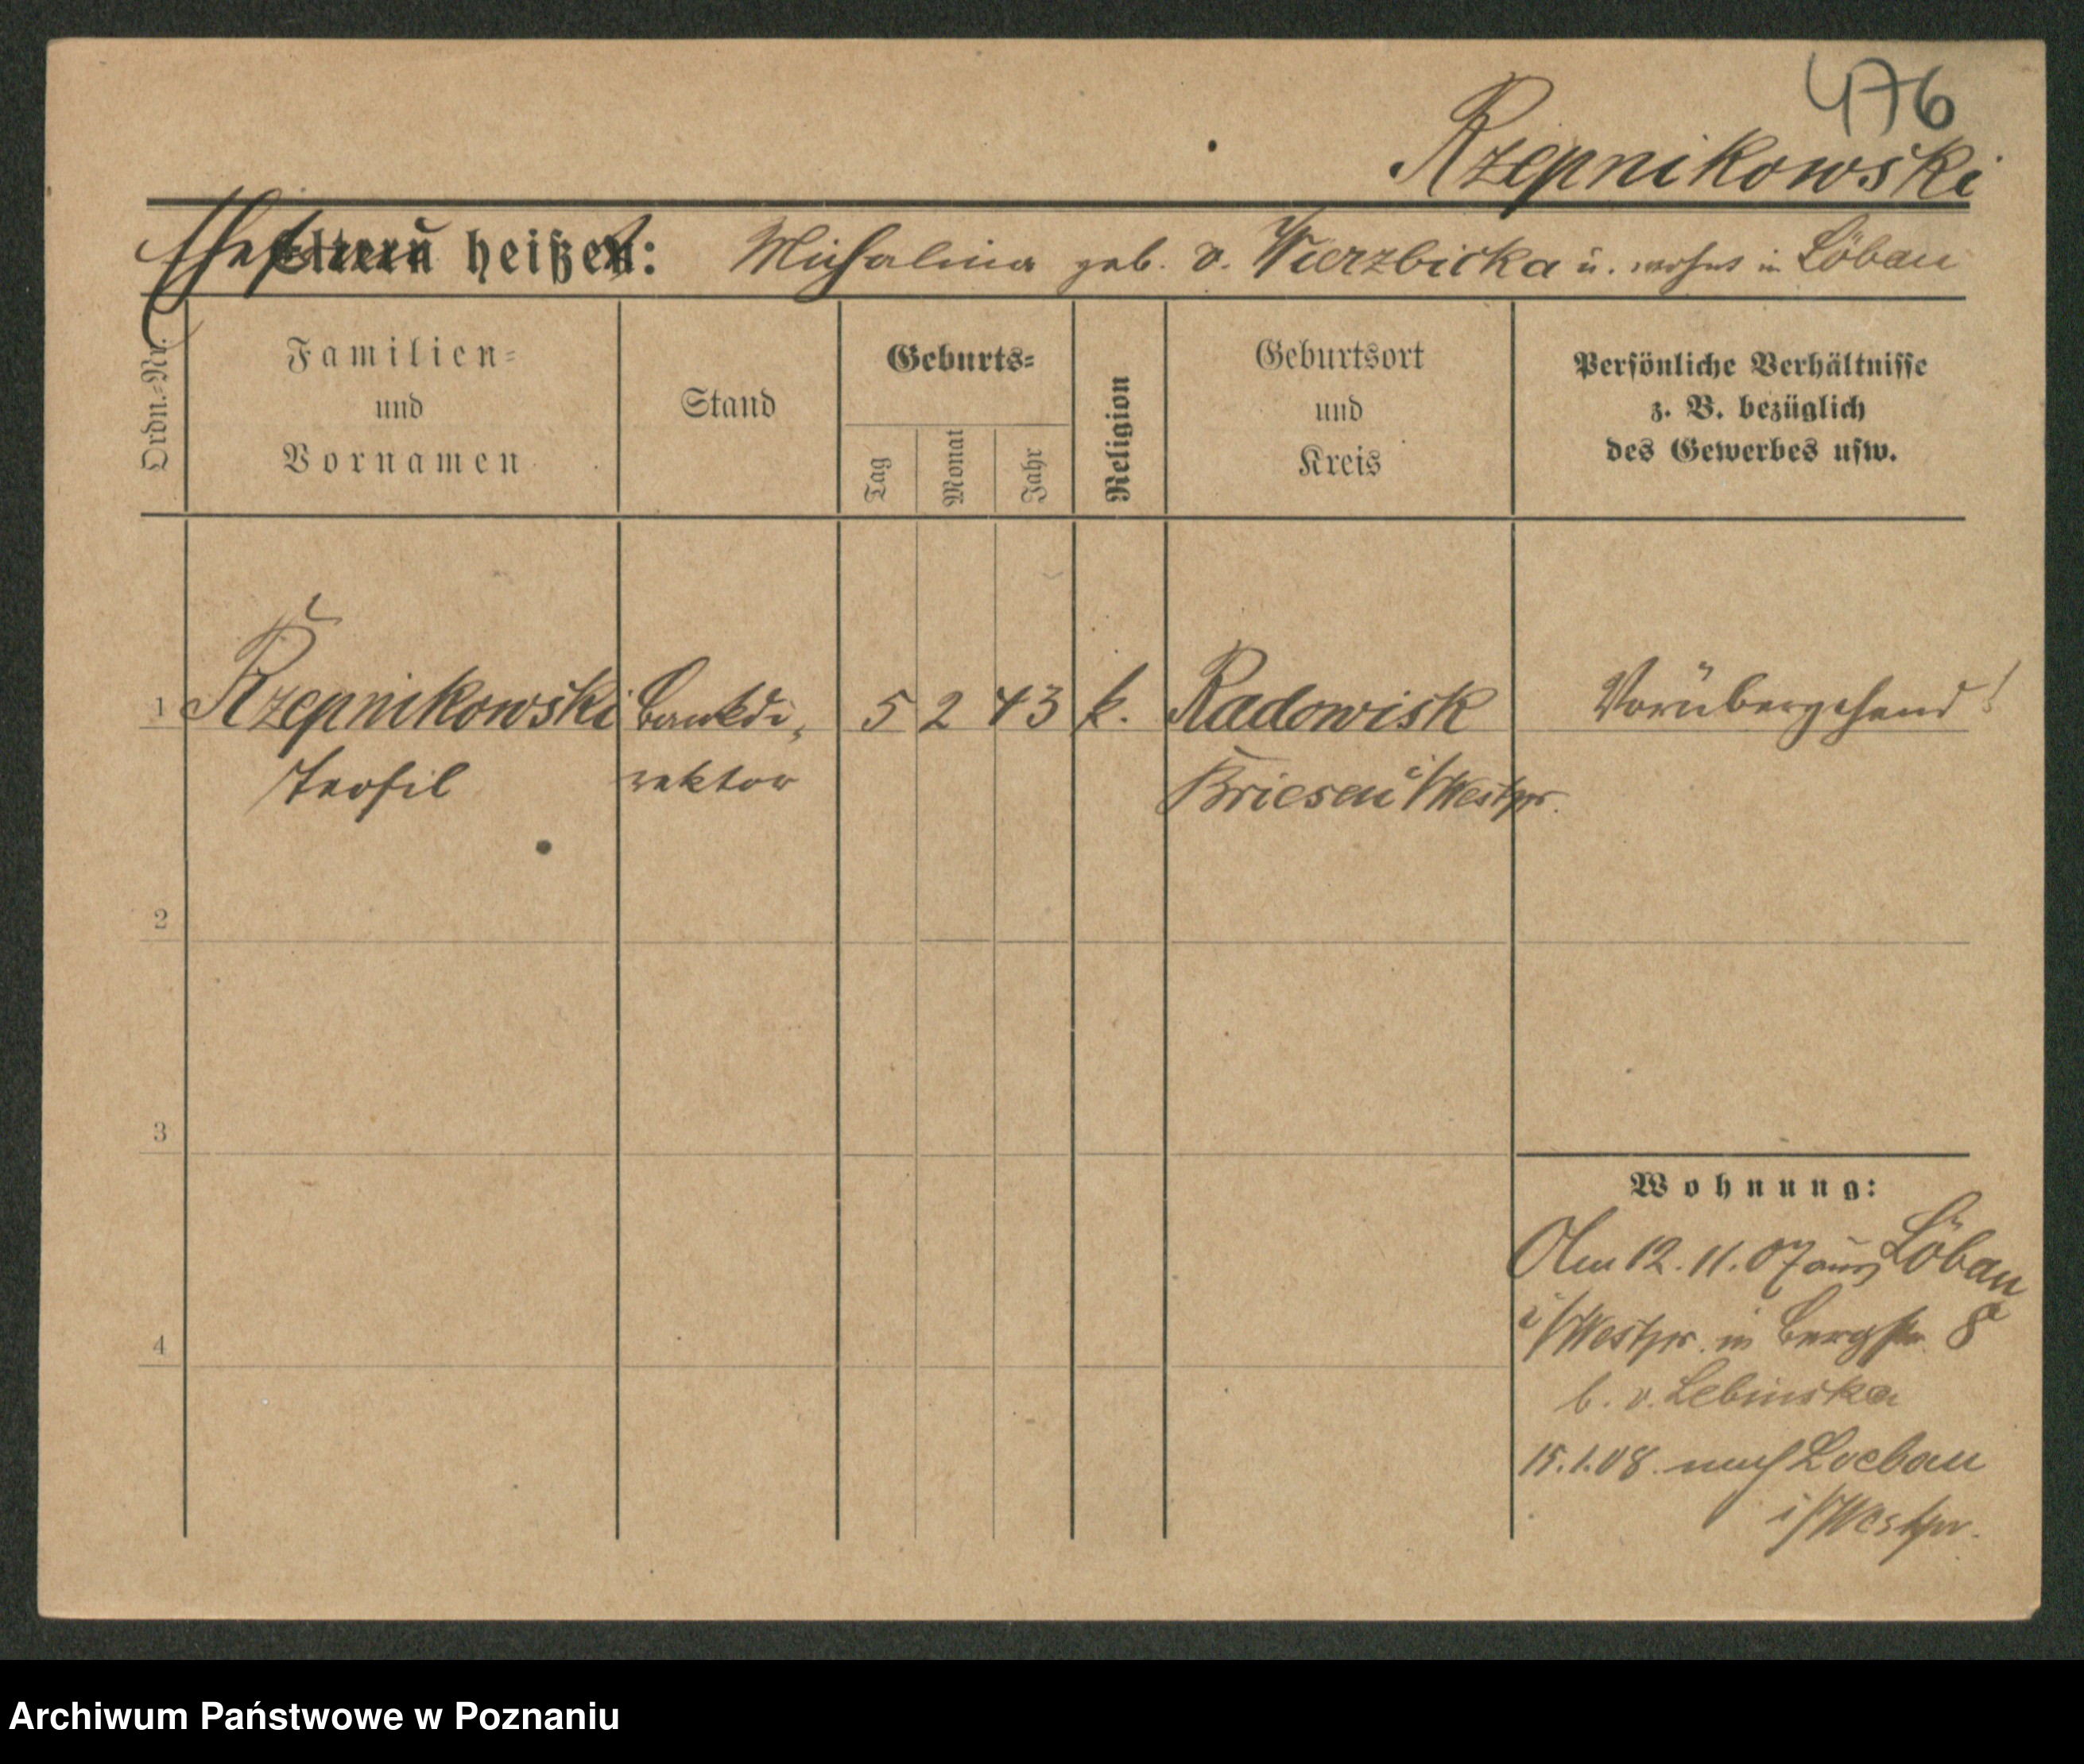 476
Rzepnikowski
Ehefrau heißt: Michalina geb. v. Wierzbicka u. wohnt in Löbau
Ordn.-Nr.
Familien-
und
Vornamen
Stand
Geburts-
Tag
Monat
Jahr
Religion
Geburtsort
und
Kreis
Persönliche Verhältnisse
z. B. bezüglich
des Gewerbes usw.
1 Rzepnikowski Bankdi- 5 2 43 k. Radowisk Vorübergehend!
Teofil rektor Briesen i/Westpr.
2
3
Wohnung:
Am 12.11.07 aus Löbau
i/Westpr. in Bergstr. 8a
4
b. v. Lebinska
15.1.08. nach Loebau
i/Westpr.
Archiwum Państwowe w Poznaniu